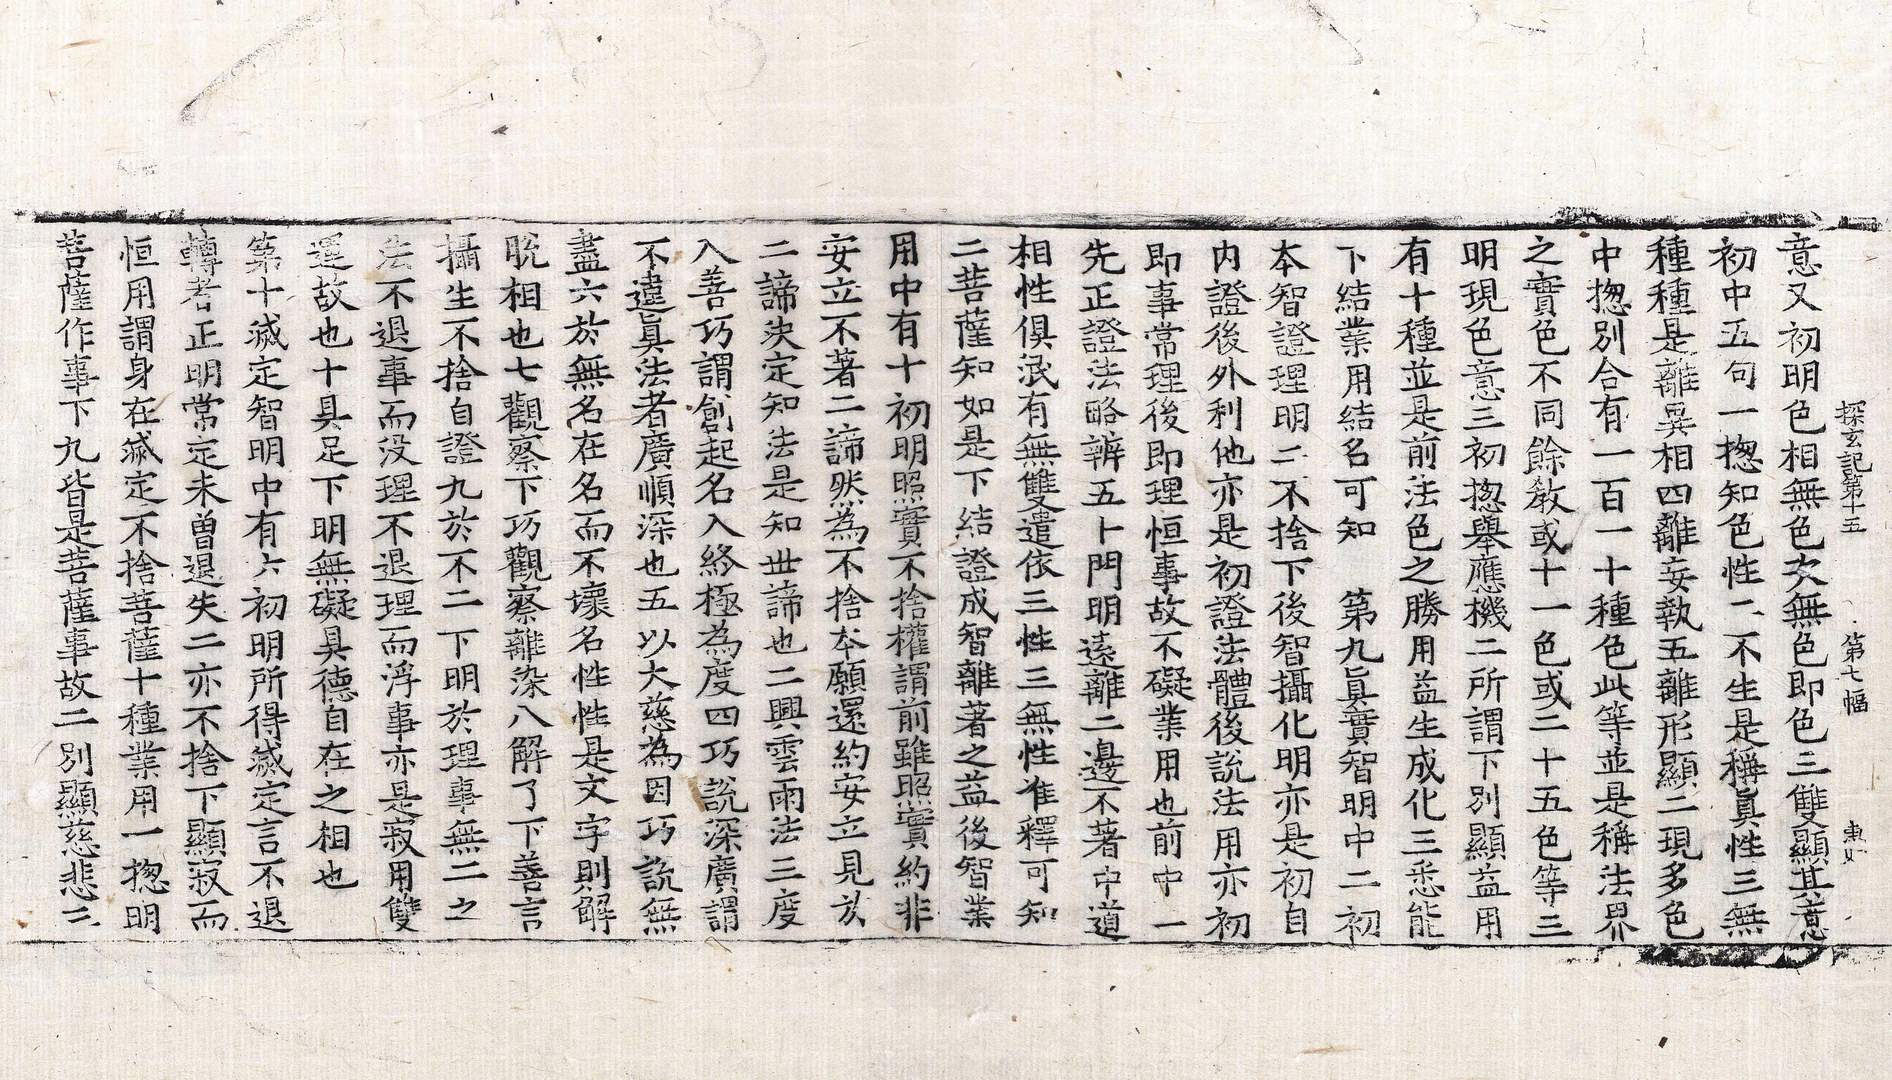 探玄記第十五 第七幅
意又初明色相無色次無色即色三雙顯其意
初中五句一揔知色性二不生是稱眞性三無
種種是離異相四離妄執五離形顯二現多色
中揔別合有一百一十種色此等並是稱法界
之實色不同餘教或十一色或二十五色等三
明現色意三初揔舉應機二所謂下別顯益用
有十種並是前法色之勝用益生成化三悉能
下結業用結名可知 第九眞實智明中二初
本智證理明二不捨下後智攝化明亦是初自
内證後外利他亦是初證法體後說法用亦初
即事常理後即理恒事故不礙業用也前中一
先正證法略辨五十門明遠離二邊不著中道
相性俱泯有無雙遣依三性三無性准釋可知
二菩薩知如是下結證成智離著之益後智業
用中有十初明照實不捨權謂前雖照實約非
安立不著二諦然為不捨本願還約安立見於
二諦決定知法是知世諦也二興雲雨法三度
入善巧謂創起名入終極為度四巧說深廣謂
不違眞法者廣順深也五以大慈為因巧說無
盡六於無名在名而不壞名性性是文字則解
脫相也七觀察下巧觀察離染八解了下善言
攝生不捨自證九於不二下明於理事無二之
法不退事而没理不退理而浮事亦是寂用雙
運故也十具足下明無礙具德自在之相也
第十滅定智明中有六初明所得滅定言不退
轉者正明常定未曾退失二亦不捨下顯寂而
恒用謂身在滅定不捨菩薩十種業用一揔明
菩薩作事下九皆是菩薩事故二別顯慈悲三